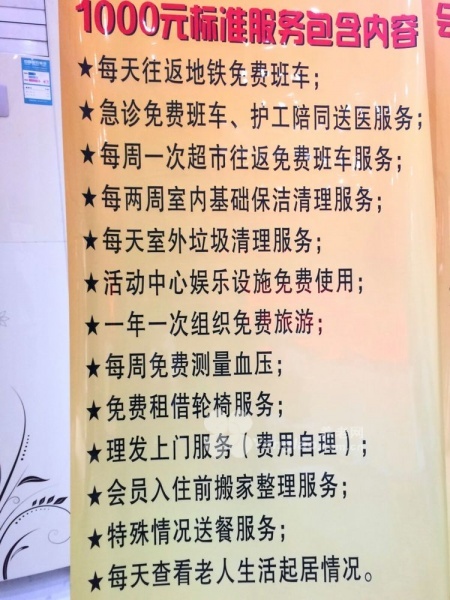 1000元标准服务包含内容
★每天往返地铁免费班车；
★急诊免费班车、护工陪同送医服务；
★每周一次超市往返免费班车服务；
★每两周室内基础保洁清理服务；
★每天室外垃圾清理服务；
★活动中心娱乐设施免费使用；
★一年一次组织免费旅游；
★每周免费测量血压；
★免费租借轮椅服务；
★理发上门服务（费用自理）；
★会员入住前搬家整理服务；
★特殊情况送餐服务；
★每天查看老人生活起居情况。